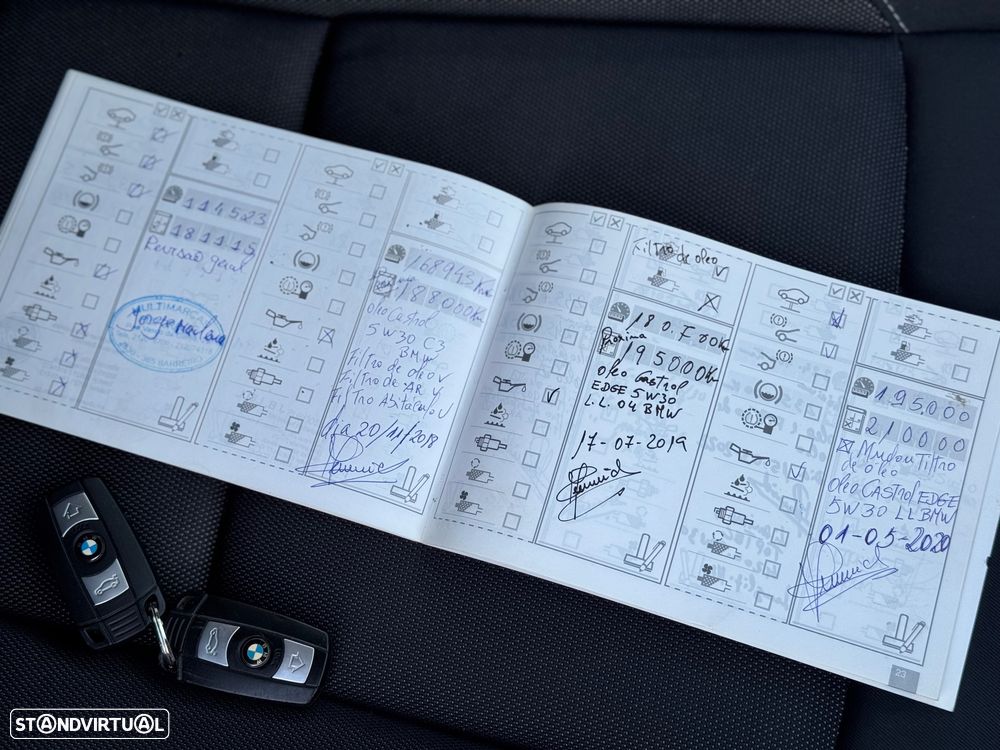 114523
181115
Revisão geral
MULTIMARCA
168943 Km
188000 Km
oleo Castrol
5W30 C3
BMW
Filtro de oleo V
Filtro de AR V
Filtro Abitáculo V
20/11/2018
Filtro de oleo
180.700 Km
Proxima
195000 Km
oleo Castrol
EDGE 5W30
L.L. 04 BMW
17-07-2019
195000
210000
Mudou Filtro
de oleo
oleo CASTROL EDGE
5W30 LL BMW
01-05-2020
23
BMW
STANDVIRTUAL